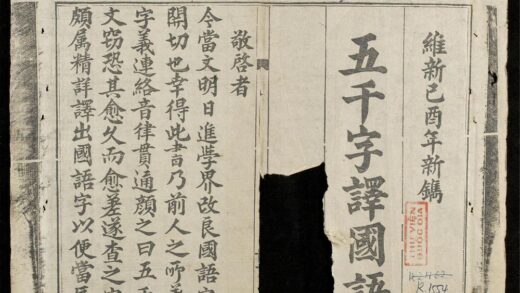 維新己酉年新鐫
五千字譯國語
敬啓者
今當文明日進學界改良國語
開切也幸得此書乃前人之所
字義連絡音律貫通顏之曰五
文窃恐其愈久而愈差遂查之
頗属精詳譯出國語字以便當
THƯ VIỆN
QUỐC GIA
R.1554